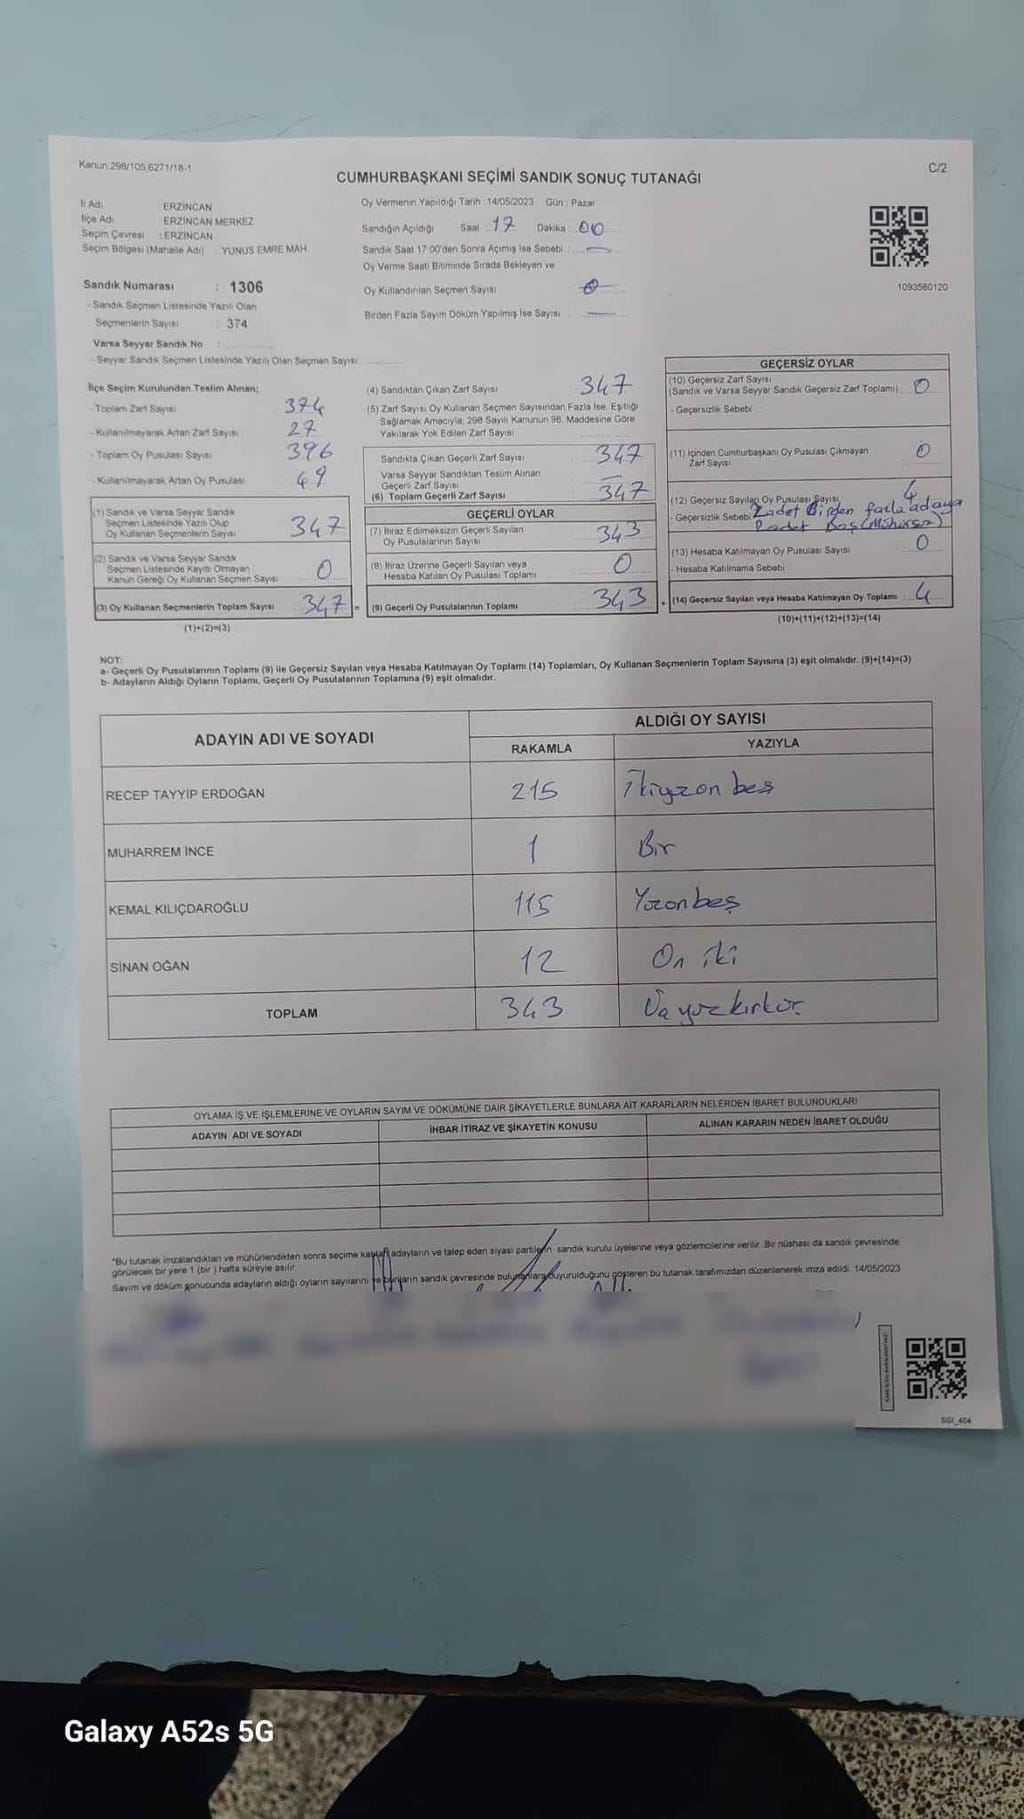 Kanun:298/105,6271/18-1
C/2
CUMHURBAŞKANI SEÇİMİ SANDIK SONUÇ TUTANAĞI
İl Adı ERZİNCAN
İlçe Adı ERZİNCAN MERKEZ
Seçim Çevresi : ERZİNCAN
Seçim Bölgesi (Mahalle Adı) YUNUS EMRE MAH
Sandık Numarası : 1306
- Sandık Seçmen Listesinde Yazılı Olan
Seçmenlerin Sayısı : 374
Varsa Seyyar Sandık No :
- Seyyar Sandık Seçmen Listesinde Yazılı Olan Seçmen Sayısı
Oy Vermenin Yapıldığı Tarih : 14/05/2023 Gün : Pazar
Sandığın Açıldığı Saat : 17 Dakika : 00
Sandık Saat 17:00'den Sonra Açılmış İse Sebebi : —
Oy Verme Saati Bitiminde Sırada Bekleyen ve
Oy Kullandırılan Seçmen Sayısı : 0
Birden Fazla Sayım Döküm Yapılmış İse Sayısı : —
1093560120
İlçe Seçim Kurulundan Teslim Alınan;
- Toplam Zarf Sayısı 374
- Kullanılmayarak Artan Zarf Sayısı 27
- Toplam Oy Pusulası Sayısı 396
- Kullanılmayarak Artan Oy Pusulası 49
(1) Sandık ve Varsa Seyyar Sandık
Seçmen Listesinde Yazılı Olup
Oy Kullanan Seçmenlerin Sayısı 347
(2) Sandık ve Varsa Seyyar Sandık
Seçmen Listesinde Kayıtlı Olmayan
Kanun Gereği Oy Kullanan Seçmen Sayısı 0
(3) Oy Kullanan Seçmenlerin Toplam Sayısı 347 =
(1)+(2)=(3)
(4) Sandıktan Çıkan Zarf Sayısı 347
(5) Zarf Sayısı Oy Kullanan Seçmen Sayısından Fazla İse, Eşitliği
Sağlamak Amacıyla; 298 Sayılı Kanunun 98. Maddesine Göre
Yakılarak Yok Edilen Zarf Sayısı
Sandıkta Çıkan Geçerli Zarf Sayısı 347
Varsa Seyyar Sandıktan Teslim Alınan
Geçerli Zarf Sayısı —
(6) Toplam Geçerli Zarf Sayısı 347
GEÇERLİ OYLAR
(7) İtiraz Edilmeksizin Geçerli Sayılan
Oy Pusulalarının Sayısı 343
(8) İtiraz Üzerine Geçerli Sayılan veya
Hesaba Katılan Oy Pusulası Toplamı 0
(9) Geçerli Oy Pusulalarının Toplamı 343 +
GEÇERSİZ OYLAR
(10) Geçersiz Zarf Sayısı
(Sandık ve Varsa Seyyar Sandık Geçersiz Zarf Toplamı) 0
- Geçersizlik Sebebi :
(11) İçinden Cumhurbaşkanı Oy Pusulası Çıkmayan
Zarf Sayısı 0
(12) Geçersiz Sayılan Oy Pusulası Sayısı 4
- Geçersizlik Sebebi 2 adet Birden fazla adaya
2 adet Boş (Mühürsüz)
(13) Hesaba Katılmayan Oy Pusulası Sayısı 0
- Hesaba Katılmama Sebebi
(14) Geçersiz Sayılan veya Hesaba Katılmayan Oy Toplamı 4
(10)+(11)+(12)+(13)=(14)
NOT:
a- Geçerli Oy Pusulalarının Toplamı (9) ile Geçersiz Sayılan veya Hesaba Katılmayan Oy Toplamı (14) Toplamları, Oy Kullanan Seçmenlerin Toplam Sayısına (3) eşit olmalıdır. (9)+(14)=(3)
b- Adayların Aldığı Oyların Toplamı, Geçerli Oy Pusulalarının Toplamına (9) eşit olmalıdır.
ADAYIN ADI VE SOYADI
ALDIĞI OY SAYISI
RAKAMLA YAZIYLA
RECEP TAYYİP ERDOĞAN 215 İkiyüzon beş
MUHARREM İNCE 1 Bir
KEMAL KILIÇDAROĞLU 115 Yüzonbeş
SİNAN OĞAN 12 On iki
TOPLAM 343 Üçyüzkırküç
OYLAMA İŞ VE İŞLEMLERİNE VE OYLARIN SAYIM VE DÖKÜMÜNE DAİR ŞİKAYETLERLE BUNLARA AİT KARARLARIN NELERDEN İBARET BULUNDUKLARI
ADAYIN ADI VE SOYADI İHBAR İTİRAZ VE ŞİKAYETİN KONUSU ALINAN KARARIN NEDEN İBARET OLDUĞU
*Bu tutanak imzalandıktan ve mühürlendikten sonra seçime katılan adayların ve talep eden siyasi partilerin sandık kurulu üyelerine veya gözlemcilerine verilir. Bir nüshası da sandık çevresinde
görülecek bir yere 1 (bir) hafta süreyle asılır.
Sayım ve döküm sonucunda adayların aldığı oyların sayılarını ve bunların sandık çevresinde bulunanlara duyurulduğunu gösteren bu tutanak tarafımızdan düzenlenerek imza edildi. 14/05/2023
SSI_404
Galaxy A52s 5G